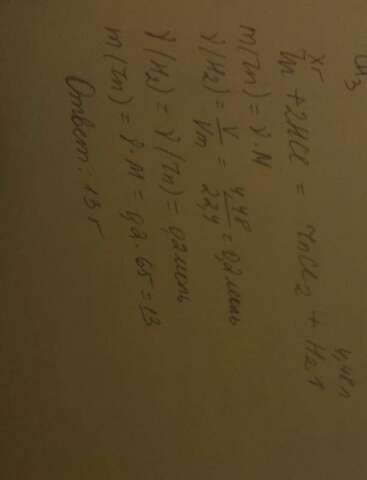 хг 4,48 л
Zn + 2HCl = ZnCl2 + H2↑
m(Zn) = ν·M
ν(H2) = V/Vm = 4,48/22,4 = 0,2 моль
ν(H2) = ν(Zn) = 0,2 моль
m(Zn) = ν·M = 0,2·65 = 13
Ответ: 13 г